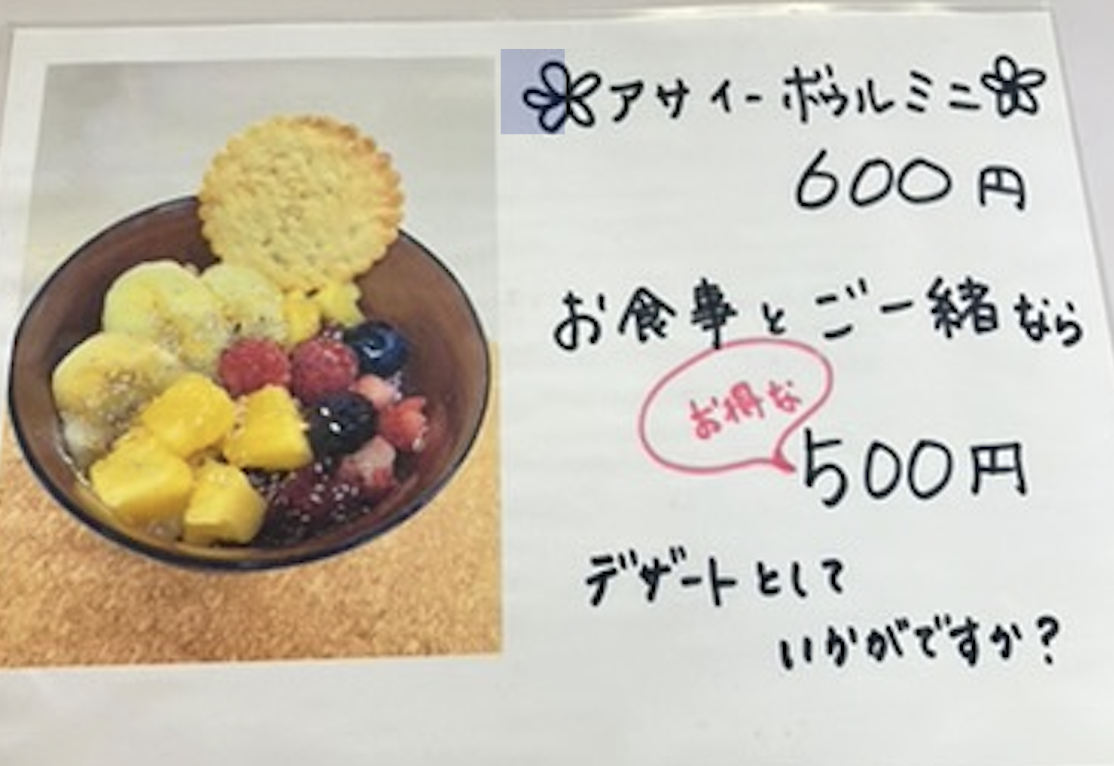 アサイーボゥルミニ
600円
お食事とご一緒なら
お得な
500円
デザートとして
いかがですか?